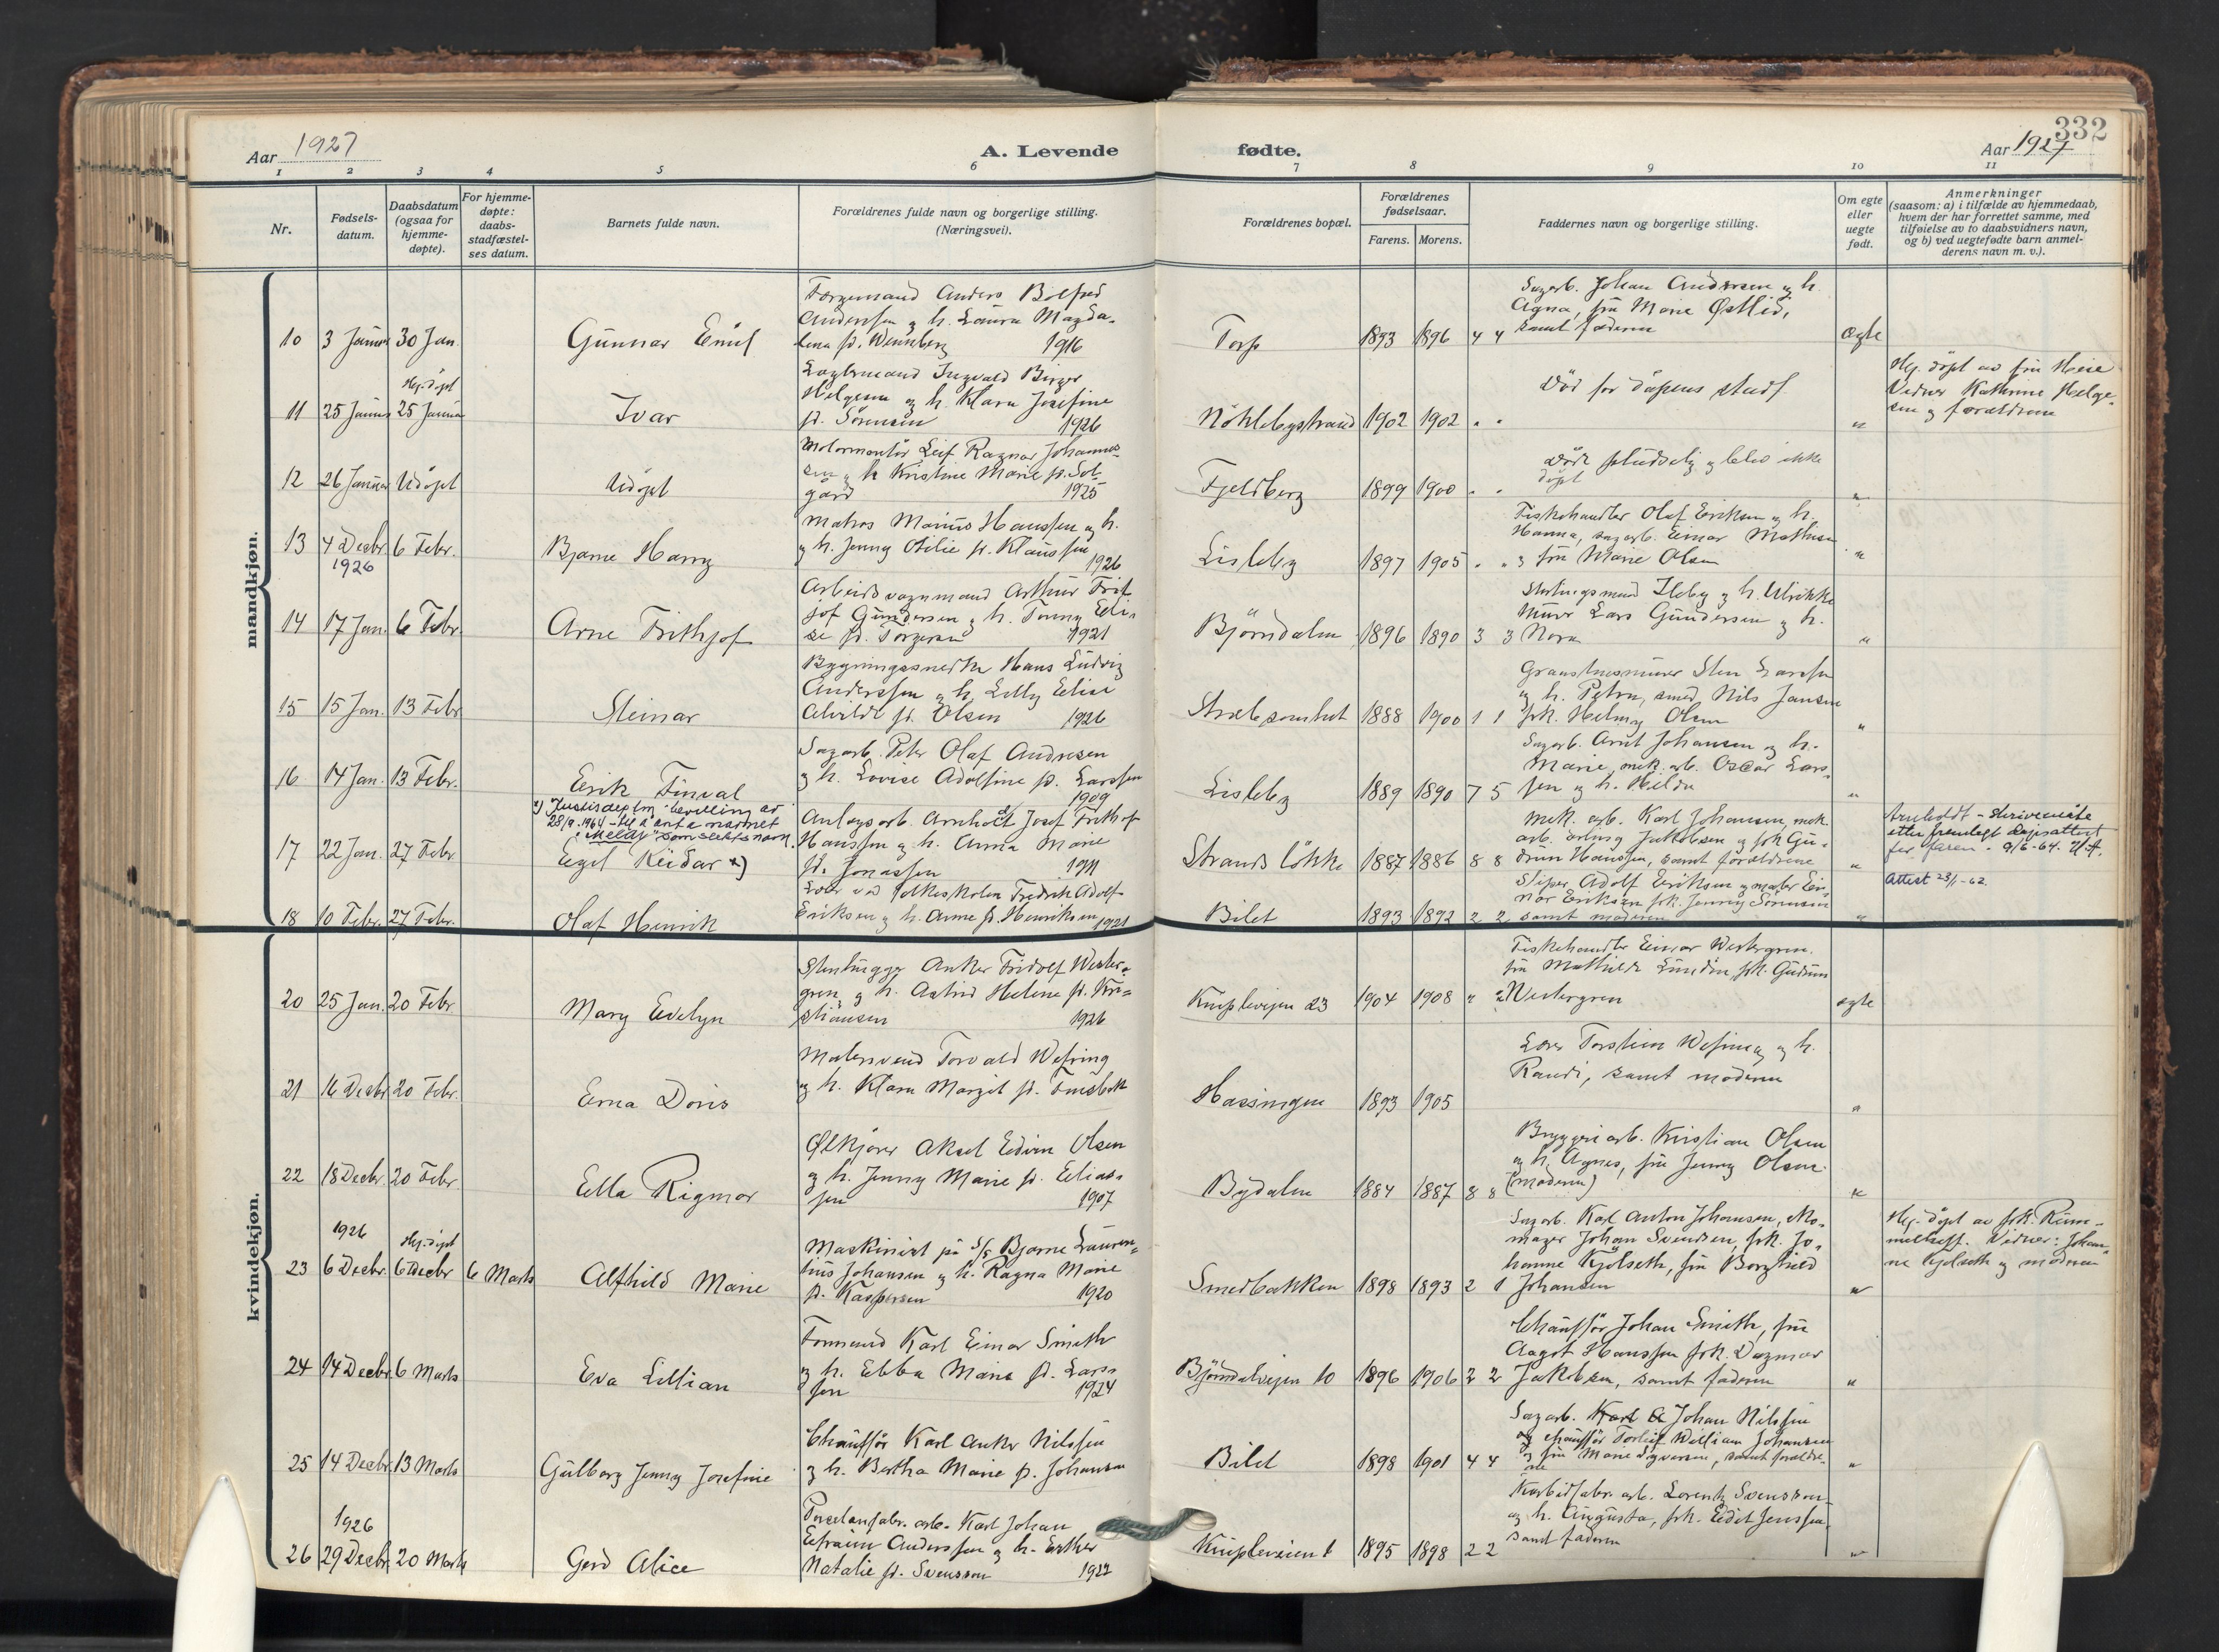 Aar 1927
A. Levende
fødte.
332
Aar 1927
1 2 3 4 5 6 7 8 9 10 11
Nr.
Fødsels-
datum.
Daabsdatum
(ogsaa for
hjemme-
døpte).
For hjemme-
døpte:
daabs-
stadfæstel-
ses datum.
Barnets fulde navn.
Forældrenes fulde navn og borgerlige stilling.
(Næringsvei).
Forældrenes bopæl.
Forældrenes
fødselsaar.
Farens. Morens.
Faddernes navn og borgerlige stilling.
Om egte
eller
uegte
født.
Anmerkninger
(saasom: a) i tilfælde av hjemmedaab,
hvem der har forrettet samme, med
tilføielse av to daabsvidners navn,
og b) ved uegtefødte barn anmel-
derens navn m. v.).
mandkjøn.
10 3 Januar 30 Jan.
Gunnar Emil
Anders Bolfred
Anderssen og h. Laura Magda-
lena f. Wennberg 1916
Torp
1893 1896 4 4
Sagarb. Johan Andersen og h.
Agna, fru Marie Østlid,
samt faderen
Ægte
11 25 Januar Hj. døpt 25 Januar
Ivar
Ingvald Birger
Helgesen og h. Klara Josefine
f. Sørensen 1926
Nøklebystrand
1902 1902 " "
Død før dåpens stadf.
"
Hj. døpt av fru Heie
Vidner Kathrine Helge-
sen og forældrene
12 26 Januar Udøpt
Udøpt
Motormontør Leif Ragnar Johannes-
sen og h. Kristine Marie f. Sol-
gård 1925
Fjeldberg
1899 1900 " "
Døde pludselig og blev ikke
døpt
"
13 4 Decbr. 6 Febr.
1926
Bjarne Harry
Matros Marius Hanssen og h.
og h. Jenny Otilie f. Klaussen
1926
Lisleby
1897 1905 " "
Fiskehandler Olaf Eriksen og h.
Hanna, sagarb. Einar Mathisen
og fru Marie Olsen
"
14 17 Jan. 6 Febr.
Arne Frithjof
Arbeidsvognmand Arthur Frit-
jof Gundersen og h. Fanny Eli-
se f. Torgersen 1921
Bjørndalen
1896 1890 3 3
Ileby og h. Ulrikke
Murer Lars Gundersen og h.
Nora
"
15 15 Jan. 13 Febr
Steinar
Bygningssnedker Hans Ludvig
Anderssen og h. Lilly Elise
Alvilde f. Olsen 1926
1888 1900 1 1
Sten Larssen
og h. Petra, smed Nils Jansen
frk. Helmy Olsen
"
16 14 Jan. 13 Febr.
Erik Finval
Sagarb. Peter Olaf Andresen
og h. Lovise Adolfine f. Larssen
1909
Lisleby
1889 1890 7 5
Sagarb. Arnt Johansen og h.
Marie, mek. arb. Oscar Lars-
sen og h. Hilda
"
x) Justisdeptm bevilling av
28/9.1964 – til å anta navnet
"Melby" som slektsnavn.
17 22 Jan. 27 Febr
Egil Reidar x)
Anlegsarb. Arnholdt Josef Frithof
Hanssen og h. Anna Marie
f. Jonassen 1911
Strands løkke
1887 1886 8 8
Mek. arb. Karl Johansen, mek.
arb. Erling Jakobsen og frk Gu-
drun Hanssen, samt forældrene
"
Arnholdt – skrivemåte
etter fremlagt dåpsattest
for faren. 9/6-64.
18 10 Febr. 27 Febr.
Olaf Henrik
Lærer ved folkeskolen Fredrik Adolf
Eriksen og h. Anna f. Henriksen 1921
Bilet
1893 1892 2 2
Sliper Adolf Eriksen og maler Ei-
nar Eriksen frk. Jenny Sørensen
samt moderen
"
Attest 23/1-62.
kvindekjøn.
20 25 Jan. 20 Febr
Mary Evelyn
Stenhugger Anker Fridolf Wester-
gren og h. Astrid Helene f. Kri-
stiansen 1926
Knipleveien 23
1904 1908 " "
Fiskehandler Einar Westergren.
fru Mathilde Lundin, frk. Gudrun
Westergren
ægte
21 16 Decbr 20 Febr.
Erna Doris
Malersvend Torvald Wefring
og h. Klara Margit f.
Hassingen
1893 1905
Lærer Torstein Wefring og h.
Randi, samt moderen
"
22 18 Decbr. 20 Febr.
Ella Rigmor
Ølkjører Aksel Edvin Olsen
og h. Jenny Marie f. Elias-
sen 1907
Bydalen
1884 1887 8 8
Bryggeriarb. Kristian Olsen
og h. Agnes, fru Jenny Olsen
(moderen)
"
1926 Hj. døpt
23 6 Decbr. 6 Decbr 6 Marts
Alfhild Marie
Maskinist på S/S Bjarne Lauren-
tius Johansen og h. Ragna Marie
f. Kaspersen 1920
Smedbakken
1898 1893 2 1
Sagarb. Karl Anton Johansen,
Johan Svendsen, frk. Jo-
hanne Kjølseth, fru Borghild
Johansen
"
Hj. døpt av frk. Rum-
melhoff. Vidner: Johan-
ne Kjølseth og moderen
24 14 Decbr. 6 Marts
Eva Lillian
Formand Karl Einar Smith
og h. Ebba Maria f. Lars-
sen 1924
Bjørndalveien 10
1896 1906 2 2
Chauffør Johan Smith, fru
Aagot Hanssen frk. Dagmar
Jakobsen, samt faderen
"
25 14 Decbr. 13 Marts
Gulborg Jenny Josefine
Chauffør Karl Anker Nilssen
og h. Bertha Marie f. Johansen
Bilet
1898 1901 4 4
Sagarb. Karl Johan Nilssen
og chauffør Torleif William Johansen
og fru Marie Syversen, samt forældre-
ne
"
1926
26 29 Decbr. 20 Marts
Gerd Alice
Porselansfabr. arb. Karl Johan
Efraim Anderssen og h. Esther
Natalie f. Svensson 1922
Knipleveien 1
1895 1898 2 2
Karbidfabr. arb. Lorentz Svensson
og h. Augusta, frk. Edit Jenssen,
samt faderen
"